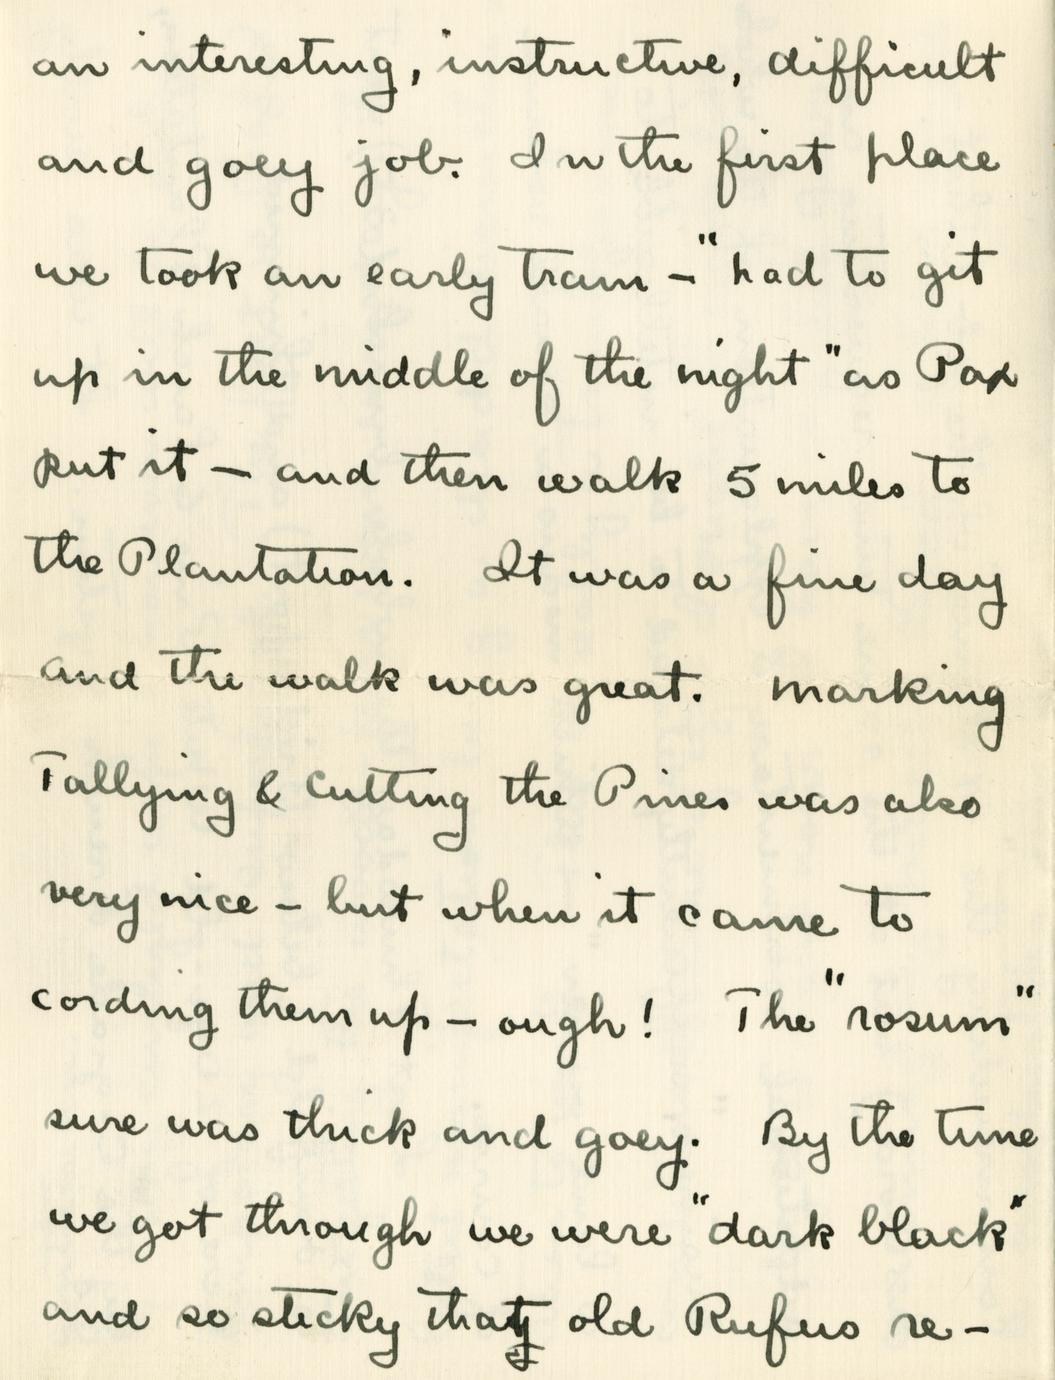 an interesting, instructive, difficult
and goey job. In the first place
we took an early train – "had to git
up in the middle of the night" as Pax
put it – and then walk 5 miles to
the Plantation. It was a fine day
and the walk was great. Marking
Tallying & Cutting the Pines was also
very nice – but when it came to
cording them up – ough! The "rosum"
sure was thick and goey. By the time
we got through we were "dark black"
and so sticky that old Rufus re-